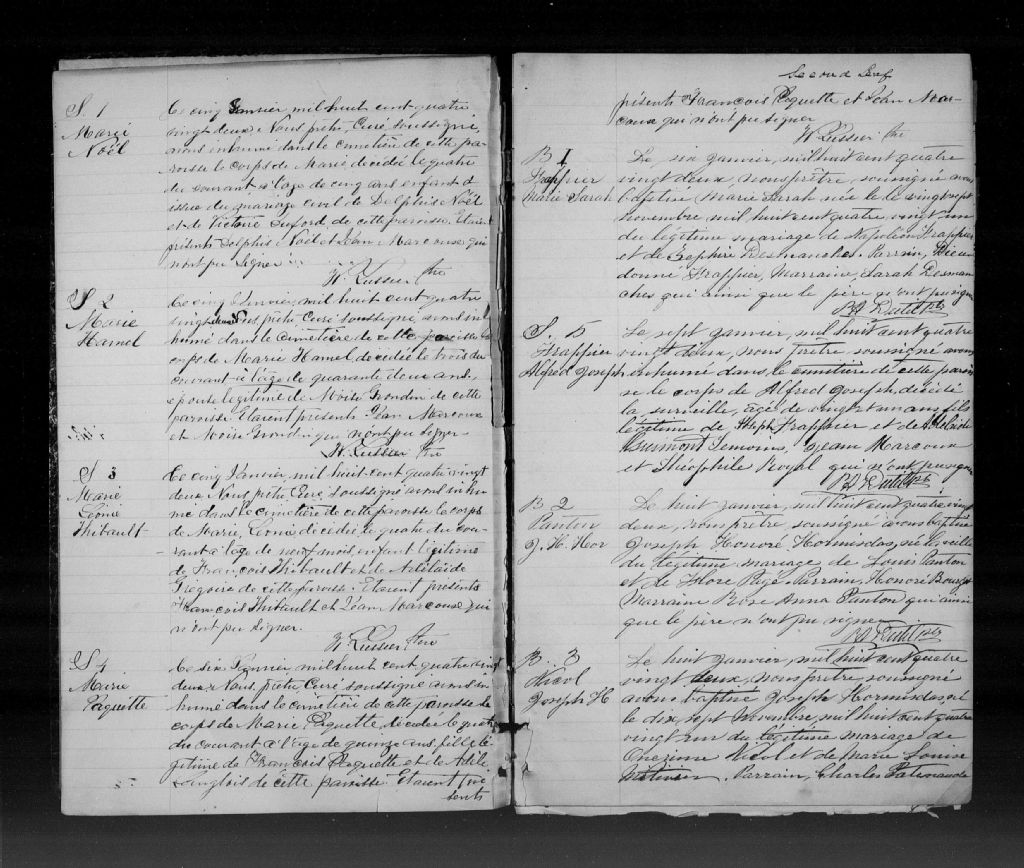 S. 1
Marie
Noël
Le cinq Janvier, mil huit cent quatre
vingt deux, Nous prêtre, Curé, soussigné,
avons inhumé dans le cimetière de cette pa-
roisse le corps de Marie, décédée le quatre
du courant à l'age de cinq ans enfant
issue du mariage civil de Delphis Noël
et de Victoire de cette paroisse. Etaient
présents Delphis Noël et Jean Marcoux qui
n'ont pu signer
Lussier Ptre
S 2
Marie
Hamel
Le cinq Janvier, mil huit cent quatre
vingt deux Nous prêtre Curé soussigné, avons in
humé dans le cimetière de cette paroisse le
corps de Marie Hamel, décédée le trois du
courant à l'âge de quarante deux ans,
épouse légitime de Moïse Grondin de cette
paroisse. Etaient présents Jean Marcoux
et Moïse Grondin qui n'ont pu signer
Lussier Ptre
S 3
Marie
Léonie
Thibault
Le cinq Janvier, mil huit cent quatre vingt
deux Nous prêtre Curé soussigné avons inhu
mé dans le cimetière de cette paroisse le corps
de Marie, Léonie décédée le quatre du cou-
rant à l'age de neuf mois, enfant légitime
de François Thibault et de Adélaïde
Grégoire de cette paroisse. Etaient présents
François Thibault et Jean Marcoux qui
n'ont pu signer.
Lussier Ptre
S 4
Marie
Paquette
Le six Janvier, mil huit cent quatre vingt
deux, Nous prêtre Curé soussigné avons in
humé dans le cimetière de cette paroisse le
corps de Marie, Paquette, décédée le quatre
du courant à l'âge de quinze ans, fille lé
gitime de François Paquette et de Adèle
Langlois de cette paroisse Etaient pré
sents
Second
présents François Paquette et Jean Mar-
coux qui n'ont pu signer
Lussier Ptre
B 1
Frappier
Marie Sarah
Le six janvier, mil huit cent quatre
vingt deux, nous prêtre, soussigné avons
baptisé Marie Sarah née le vingt sept
novembre mil huit cent quatre vingt un
du légitime mariage de Napoléon Frappier
et de Zéphire Desmanches. Parrain, Dieu
donné Frappier, Marraine, Sarah Desman
ches qui ainsi que le père n'ont pu signer
S. 5
Frappier
Alfred Joseph
Le sept janvier, mil huit cent quatre
vingt deux, nous prêtre soussigné avons
inhumé dans le cimetière de cette parois
se le corps de Alfred Joseph décédé
la surveille, âgé de vingt un ans fils
légitime de Joseph Frappier et de Adélaïde
Témoins, Jean Marcoux
et Théophile Royal qui n'ont pu signer
B 2
Panton
J. H. Hor
Le huit janvier, mil huit cent quatre vingt
deux, nous prêtre, soussigné avons baptisé
Joseph Honoré Hormisdas, né la veille
du légitime mariage de Louis Panton
et de Flore Pagé. Parrain, Honoré
Marraine Rose Anna Panton qui ainsi
que le père n'ont pu signer
B. 3
Nicol
Joseph H
Le huit janvier, mil huit cent quatre
vingt deux, nous prêtre soussigné
avons baptisé Joseph Hormisdas, né
le dix sept novembre mil huit cent quatre
vingt un du légitime mariage de
Onézime Nicol et de Marie Louise
Parrain, Charles